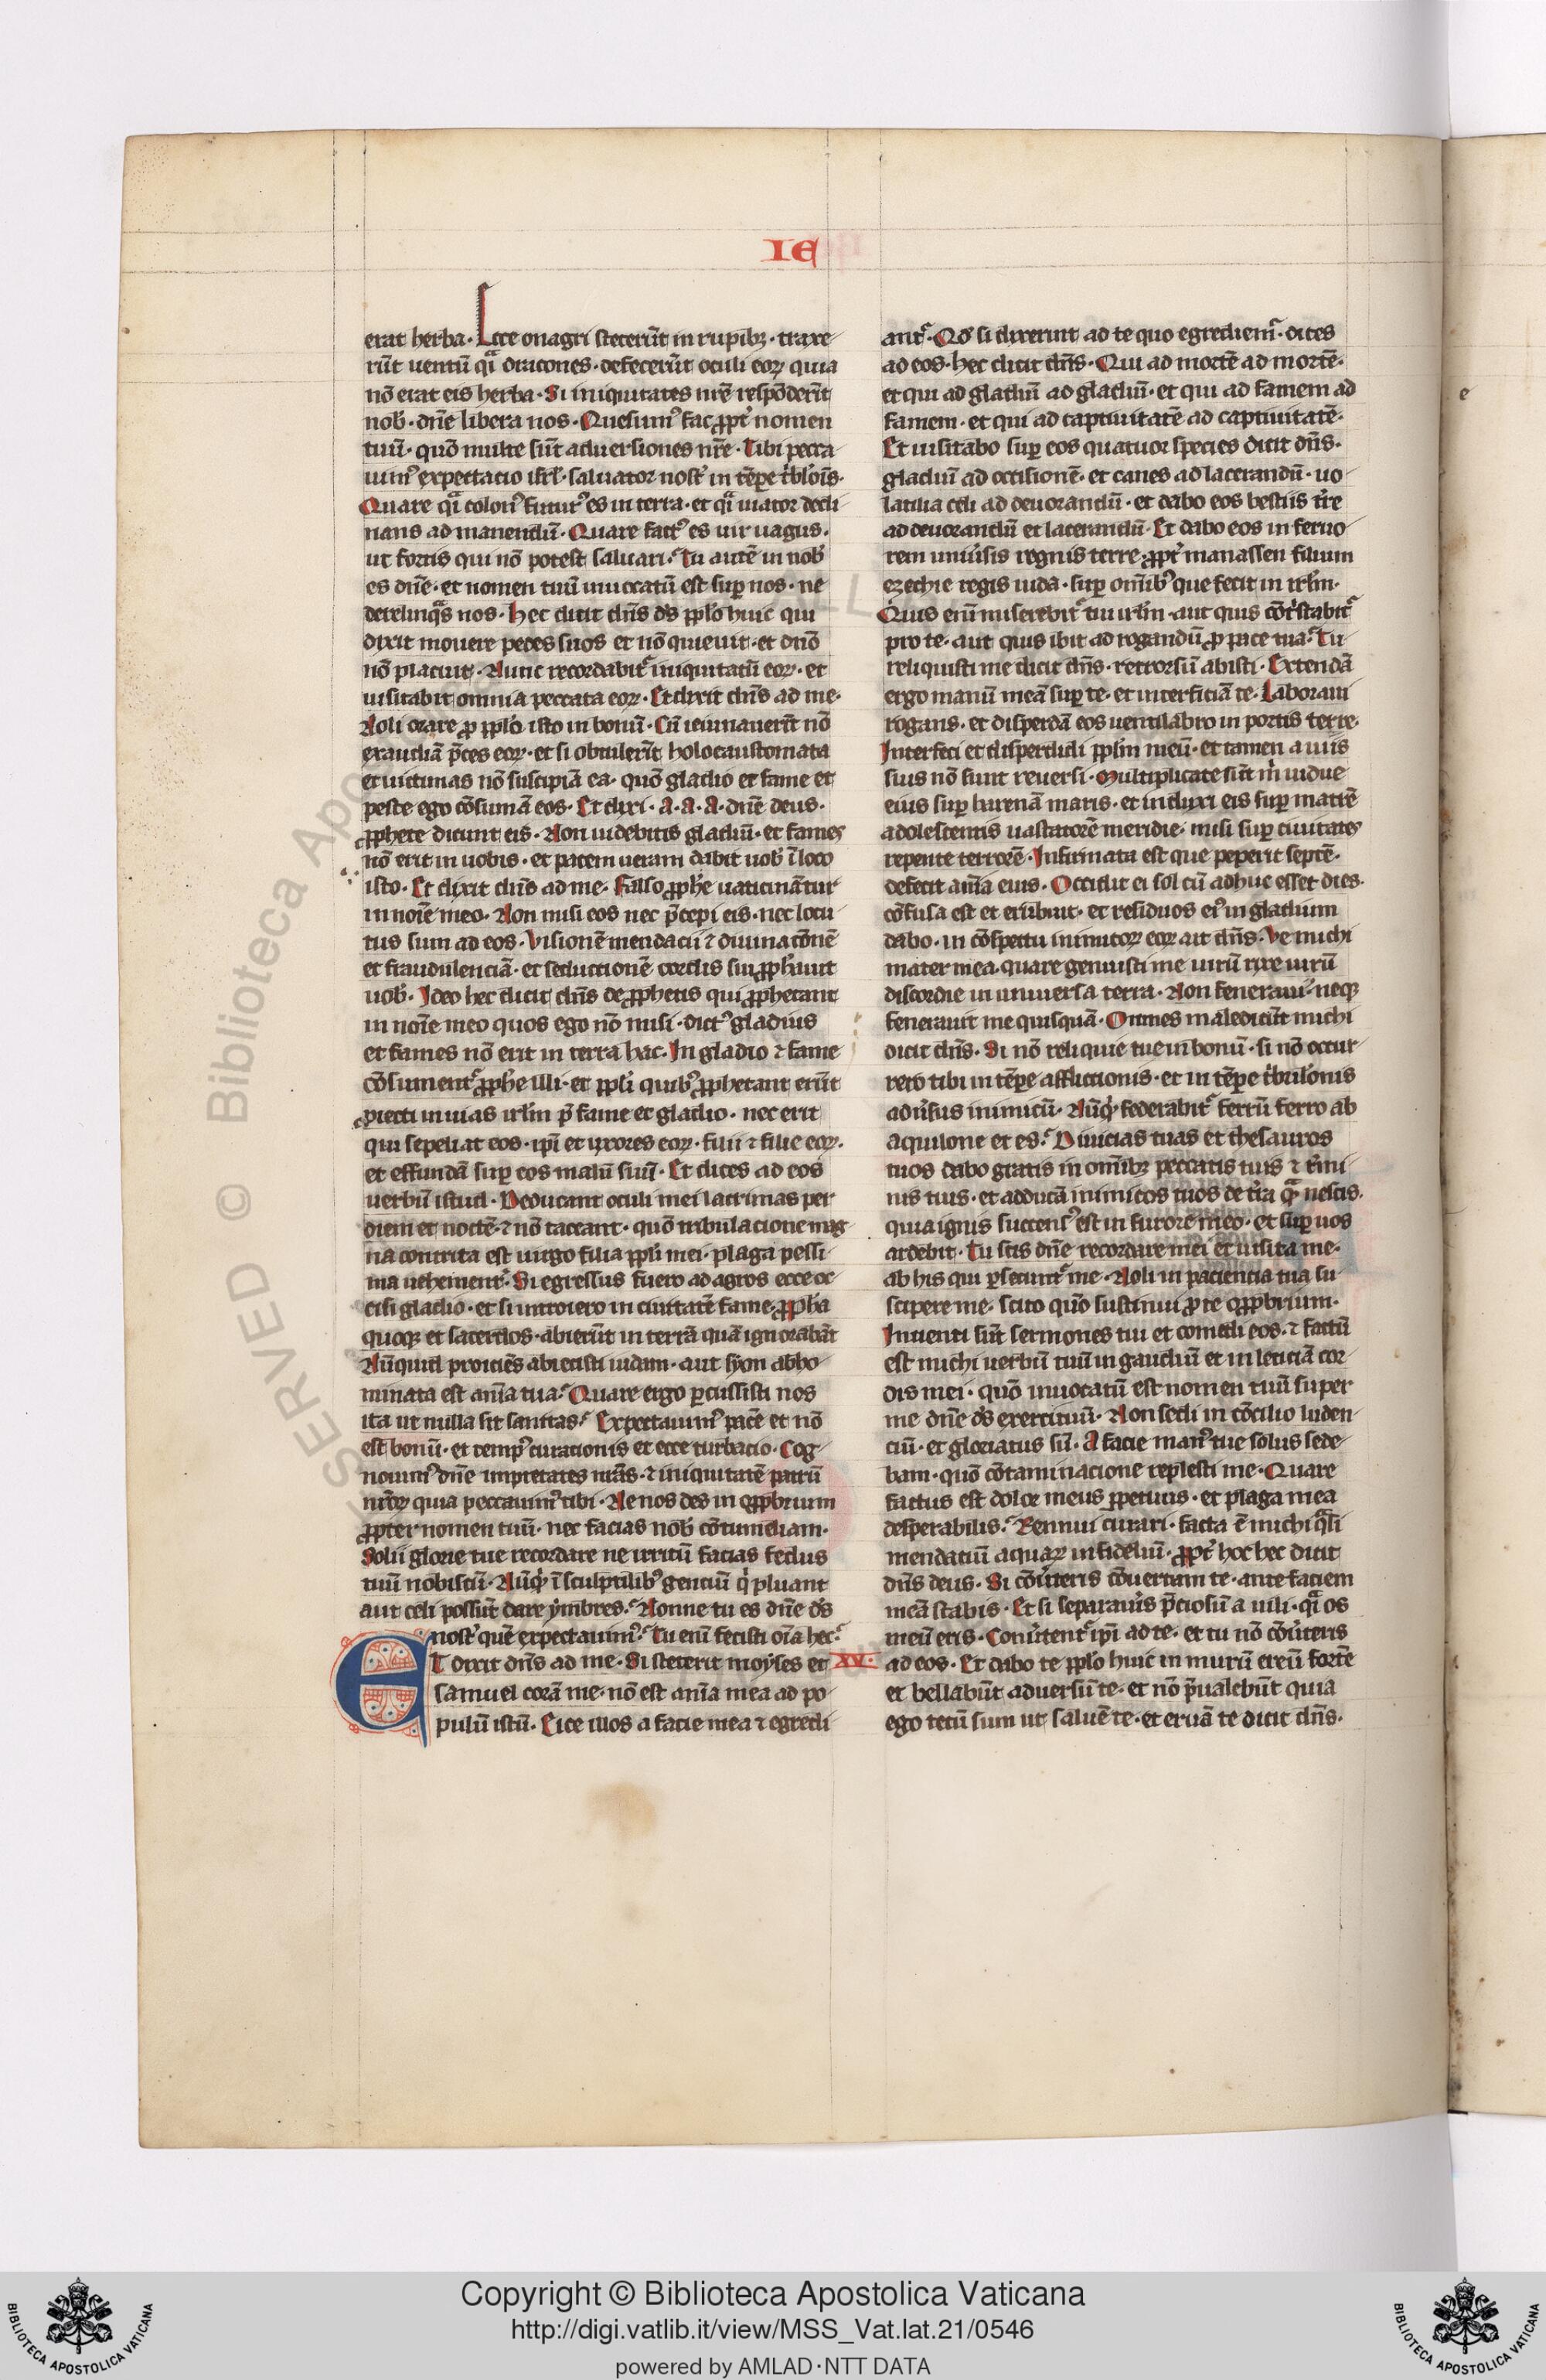 IE
erat herba. Ecce onagri steterũt in rupibꝫ. traxe
rũt uentũ qͣ dracones. defecerũt oculi eoꝝ quia
nõ erat eis herba. Si iniquitates nr̃e respõderĩt
nob̾. dñe libera nos. Quesumꝰ fac ꝓpt̾ nomen
tuũ. quõ multe sũt aduersiones nr̃e. Tibi pecca
uimꝰ expectacio isrl̾. saluator nost̾ in tẽpe t̾bl̾ois.
Quare qͣ colonꝰ futurꝰ es in terra. et qͣ uiator decli
nans ad manendũ. Quare factꝰ es uir uagus.
ut fortis qui nõ potest saluari. Tu autẽ in nob̾
es dñe. et nomen tuũ inuocatũ est suꝑ nos. ne
derelinqͣs nos. Hec dicit dñs ds̾ ppl̾o huic qui
dixit mouere pedes suos et nõ quieuit. et dño
nõ placuit. Nunc recordabit̾ iniquitatũ eoꝝ. et
uisitabit omnia peccata eoꝝ. Et dixit dñs ad me.
Noli orare ꝓ ppl̾o isto in bonũ. Cũ ieiunauerĩt nõ
exaudiã p̃ces eoꝝ. et si obtulerĩt holocaustomata
et uictimas nõ suscipiã ea. quõ gladio et fame et
peste ego cõsumã eos. Et dixi. A. A. A. dñe deus.
ꝓphete dicunt eis. Non uidebitis gladiũ. et fames
nõ erit in uobis. et pacem ueram dabit uob̾ ĩ loco
isto. Et dixit dñs ad me. Falso ꝓph̾e uaticinãtur
in noĩe meo. Non misi eos nec p̃cepi eis. nec locu
tus sum ad eos. Visionẽ mendacii ⁊ diuinacõnẽ
et fraudulenciã. et seductionẽ cordis sui ꝓph̾ant
uob̾. Ideo hec dicit dñs de ꝓphetis qui ꝓphetant
in noĩe meo quos ego nõ misi. dictꝰ gladius
et fames nõ erit in terra hac. In gladio ⁊ fame
cõsument̾ ꝓph̾e illi. et ppl̾i quibꝰ ꝓphetant erũt
ꝓiecti in uias irl̾m p̃ fame et gladio. nec erit
qui sepeliat eos. ip̃i et uxores eoꝝ. filii ⁊ filie eoꝝ.
et effundã suꝑ eos malũ suũ. Et dices ad eos
uerbũ istud. Deducant oculi mei lacrimas per
diem et noctẽ. ⁊ nõ taceant. quõ tribulacione mag
na contrita est uirgo filia ppl̾i mei. plaga pessi
ma uehement̾. Si egressus fuero ad agros ecce oc
cisi gladio. et si introiero in ciuitatẽ fame. ꝓph̾a
quoqꝫ et sacerdos. abierũt in terrã quã ignorabãt
Nũquid proiciẽs abiecisti iudam. aut syon abho
minata est anĩa tua. Quare ergo ꝑcussisti nos
ita ut nulla sit sanitas. Expectauimꝰ pacẽ et nõ
est bonũ. et tempꝰ curacionis et ecce turbacio. Cog
nouimꝰ dñe impietates nr̃as. ⁊ iniquitatẽ patrũ
nr̃oꝝ quia peccauimꝰ tibi. Ne nos des in opp̾brium
ꝓpter nomen tuũ. nec facias nob̾ cõtumeliam.
Solii glorie tue recordare ne irritũ facias fedus
tuũ nobiscũ. Nũqͥd ĩ sculptilibꝰ gentiũ qͥ pluant
aut celi possũt dare ymbres. Nonne tu es dñe ds̾
nost̾ quẽ expectauimꝰ. Tu enĩ fecisti oĩa hec.
ET dixit dñs ad me. Si steterit moyses et XV.
samuel corã me. nõ est anĩa mea ad po
pulũ istũ. Eice illos a facie mea ⁊ egredi
ant̾. Qd̾ si dixerint ad te quo egrediem̾. dices
ad eos. hec dicit dñs. Qui ad mortẽ ad mortẽ.
et qui ad gladiũ ad gladiũ. et qui ad famem ad
famem. et qui ad captiuitatẽ ad captiuitatẽ.
Et uisitabo suꝑ eos quatuor species dicit dñs.
gladiũ ad occisionẽ. et canes ad lacerandũ. uo
latilia celi ad deuorandũ. et dabo eos bestiis t̾re
ad deuorandũ et lacerandũ. Et dabo eos in feruo
rem uniu̾sis regnis terre. ꝓpt̾ manassen filium
ezechie regis iuda. suꝑ om̃ibꝰ que fecit in irl̾m.
Quis enĩ miserebit̾ tui irl̾m. aut quis cõt̾stabit̾
pro te. aut quis ibit ad rogandũ ꝓ pace tua. Tu
reliquisti me dicit dñs. retrorsũ abisti. Extendã
ergo manũ meã suꝑ te. et interficiã te. Laboraui
rogans. et disperdã eos uentilabro in portis terre.
Interfeci et disperdidi ppl̾m meũ. et tamen a uiis
suis nõ sunt reuersi. Multiplicate sũt m̾ uidue
eius suꝑ harenã maris. et induxi eis suꝑ matrẽ
adolescentis uastatorẽ meridie. misi suꝑ ciuitates
repente terrorẽ. Infirmata est que peperit septẽ.
defecit anĩa eius. Occidit ei sol cũ adhuc esset dies.
cõfusa est et erubuit. et residuos eiꝰ in gladium
dabo. in cõspectu inimicoꝝ eoꝝ ait dñs. Ve michi
mater mea. quare genuisti me uirũ rixe uirũ
discordie in uniuersa terra. Non feneraui. neqꝫ
fenerauit me quisquã. Omnes maledicũt michi
dicit dñs. Si nõ reliquie tue in bonũ. si nõ occur
rero tibi in tẽpe afflictionis. et in tẽpe t̾bul̾onis
adu̾sus inimicũ. Nũqͥd federabit̾ ferrũ ferro ab
aquilone et es. Diuicias tuas et thesauros
tuos dabo gratis in om̃ibꝫ peccatis tuis ⁊ t̾mi
nis tuis. et adducã inimicos tuos de t̾ra qͣ nescis.
quia ignis succensꝰ est in furore meo. et suꝑ uos
ardebit. Tu scis dñe recordare mei et uisita me.
ab his qui ꝑsecunt̾ me. Noli in paciencia tua su
scipere me. scito quõ sustinui ꝓ te opp̾brium.
Inuenti sũt sermones tui et comedi eos. ⁊ factũ
est michi uerbũ tuũ in gaudiũ et in leticiã cor
dis mei. quõ inuocatũ est nomen tuũ super
me dñe ds̾ exercituũ. Non sedi in cõcilio luden
ciũ. et gloriatus sũ. A facie manꝰ tue solus sede
bam. quõ cõtaminacione replesti me. Quare
factus est dolor meus ꝑpetuus. et plaga mea
desperabilis. Rennui curari. facta ẽ michi qͣsi
mendaciũ aquaꝝ infideliũ. ꝓpt̾ hoc hec dicit
dñs deus. Si cõu̾teris cõuertam te. ante faciem
meã stabis. Et si separau̾is p̃ciosũ a uili. qͣ os
meũ eris. Conu̾tent̾ ip̃i ad te. et tu nõ cõu̾teris
ad eos. Et dabo te ppl̾o huic in murũ ereũ fortẽ
et bellabũt aduersũ te. et nõ p̃ualebũt quia
ego tecũ sum ut saluẽ te. et eruã te dicit dñs.
RESERVED © Biblioteca Apo
Copyright © Biblioteca Apostolica Vaticana
http://digi.vatlib.it/view/MSS_Vat.lat.21/0546
powered by AMLAD·NTT DATA
BIBLIOTECA APOSTOLICA VATICANA
BIBLIOTECA APOSTOLICA VATICANA